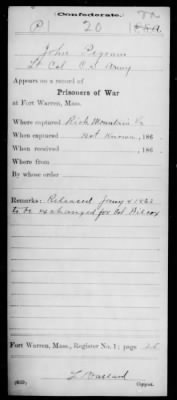 Confederate.
P 20 C.S.A.
John Pegram
Lt Col C.S. Army
Appears on a record of
Prisoners of War
at Fort Warren, Mass.
Where captured Rich Mountain Va
When captured Not Known, 186 .
When received , 186 .
Where from
By whose order
Remarks: Released Jany 1862
to be exchanged for Col Wilcox
Fort Warren, Mass., Register No. 1; page 25
Copyist.